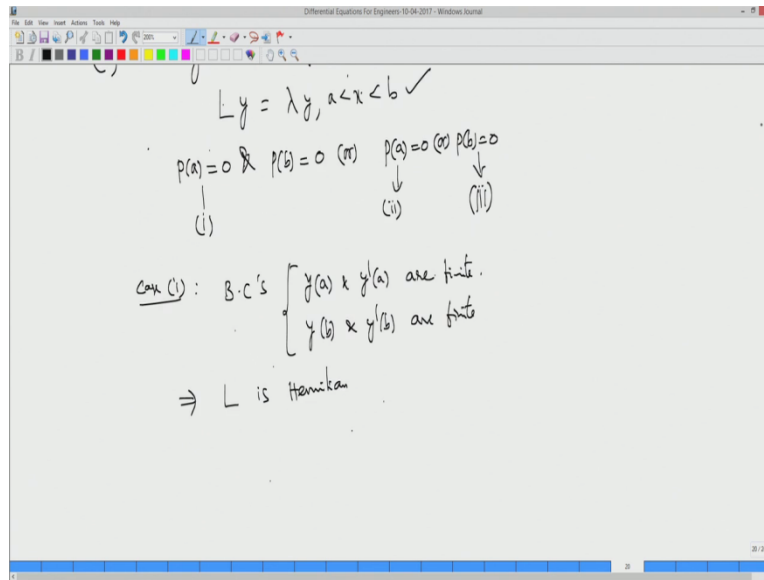 Differential Equations For Engineers-10-04-2017 - Windows Journal
File Edit View Insert Actions Tools Help
200%
B I
Ly = λy, a<x<b ✓
p(a)=0 & p(b)=0 (or) p(a)=0 (or) p(b)=0
(i) (ii) (iii)
Case (i): B.C's { y(a) & y'(a) are finite.
y(b) & y'(b) are finite
⇒ L is Hermitian
20